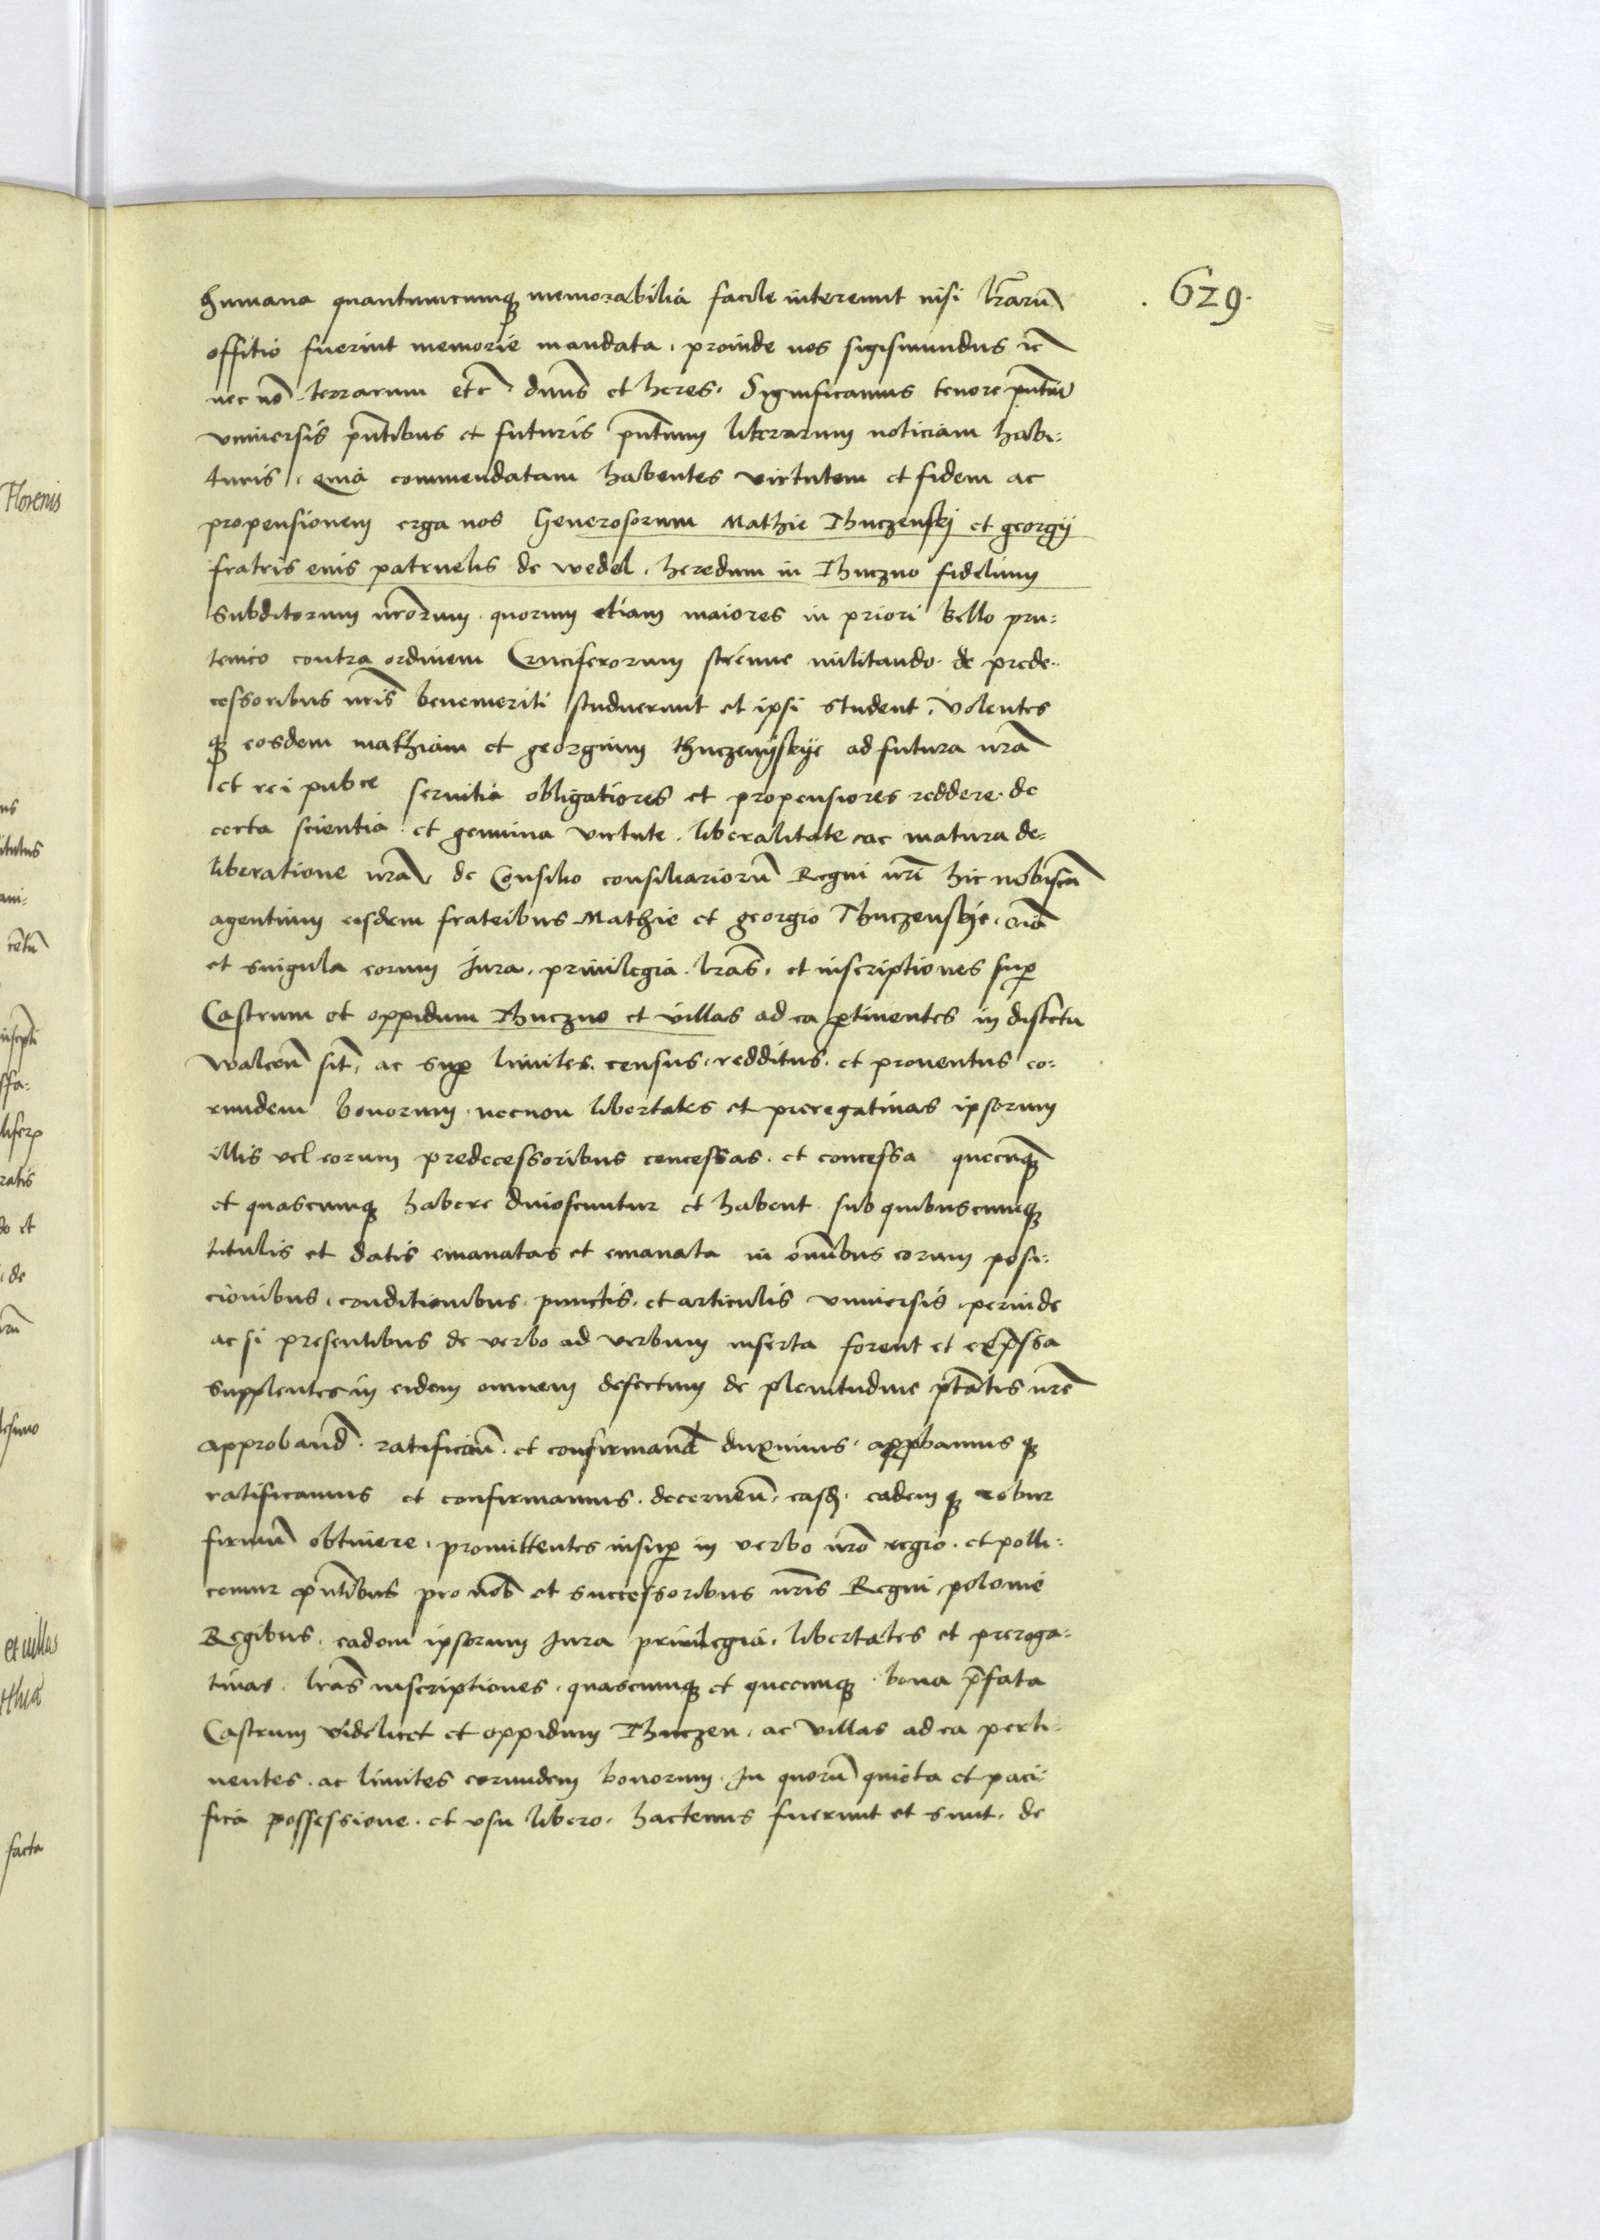 . 629.
humana quantumcumq memorabilia facile intereunt nisi lrarũ
offitio fuerint memorie mandata, proinde nos sigismundus ꝛc̃
nec nõ terrarum etc̃. dnus et heres. Significamus tenore pñtiũ
vniuersis pñtibus et futuris pñtium literarum noticiam habi:
turis, Quia commendatam habentes virtutem et fidem ac
propensionem erga nos Generosorum Mathie Thuczenskj et georgij
fratris euis patruelis de wedel. heredum in Thuczno fidelium
subditorum nrorum. quorum etiam maiores in priori bello pru:
tenico contra ordinem Cruciferorum strenue militando. de prede.
cessoribus nris benemeriti studuerunt et ipsi student, volentes
q eosdem mathiam et georgium thuczenyskye ad futura nrã
et rei pubce seruitia obligatiores et propensiores reddere. de
certa scientia et genuina virtute. liberalitate ac matura de:
liberatione nrã, de Consilio consiliariorũ Regni nrĩ hic nobiscũ
agentium eisdem fratribus Mathie et georgio Thuczenskye. oĩa
et singula eorum Jura, priuilegia. lrãs, et inscriptiones sup
Castrum et oppidum Thuczno et villas ad ea ptinentes in distctu
walceñ sit̃, ac sup limites. census. redditus. et prouentus eo:
rundem bonorum. necnon libertates et preregatiuas ipsorum
illis vel eorum predecessoribus concessas. et concessa quecũq
et quascumq habere dinoscuntur et habent. sub quibuscumq
titulis et datis emanatas et emanata in omibus eorum posi:
cionibus, conditionibus. punctis. et articulis vniuersis, perinde
ac si presentibus de verbo ad verbum inserta forent et expssa
supplentes in eidem omnem defectum de plenitudine ptatis nrẽ
approband̃. ratificañ. et confirmand̃ duximus. appbamus q
ratificamus et confirmamus. decerneñ, easd. eadem q robur
firmũ obtinere, promittentes insup in verbo nrõ regio. et polli:
cemur pñtibus pro nob̃ et successoribus nris Regni polonie
Regibus. eadem ipsorum Jura priuilegia, libertates et preroga:
tiuas. lrãs inscriptiones, quascumq et quecumq bona pfata
Castrum videlicet et oppidum Thuczen, ac villas ad ea perti:
nentes. ac limites eorundem bonorum. In quorũ quieta et paci
fica possessione. et vsu libero. hactenus fuerunt et sunt. de
Florenis
et uillas
facta